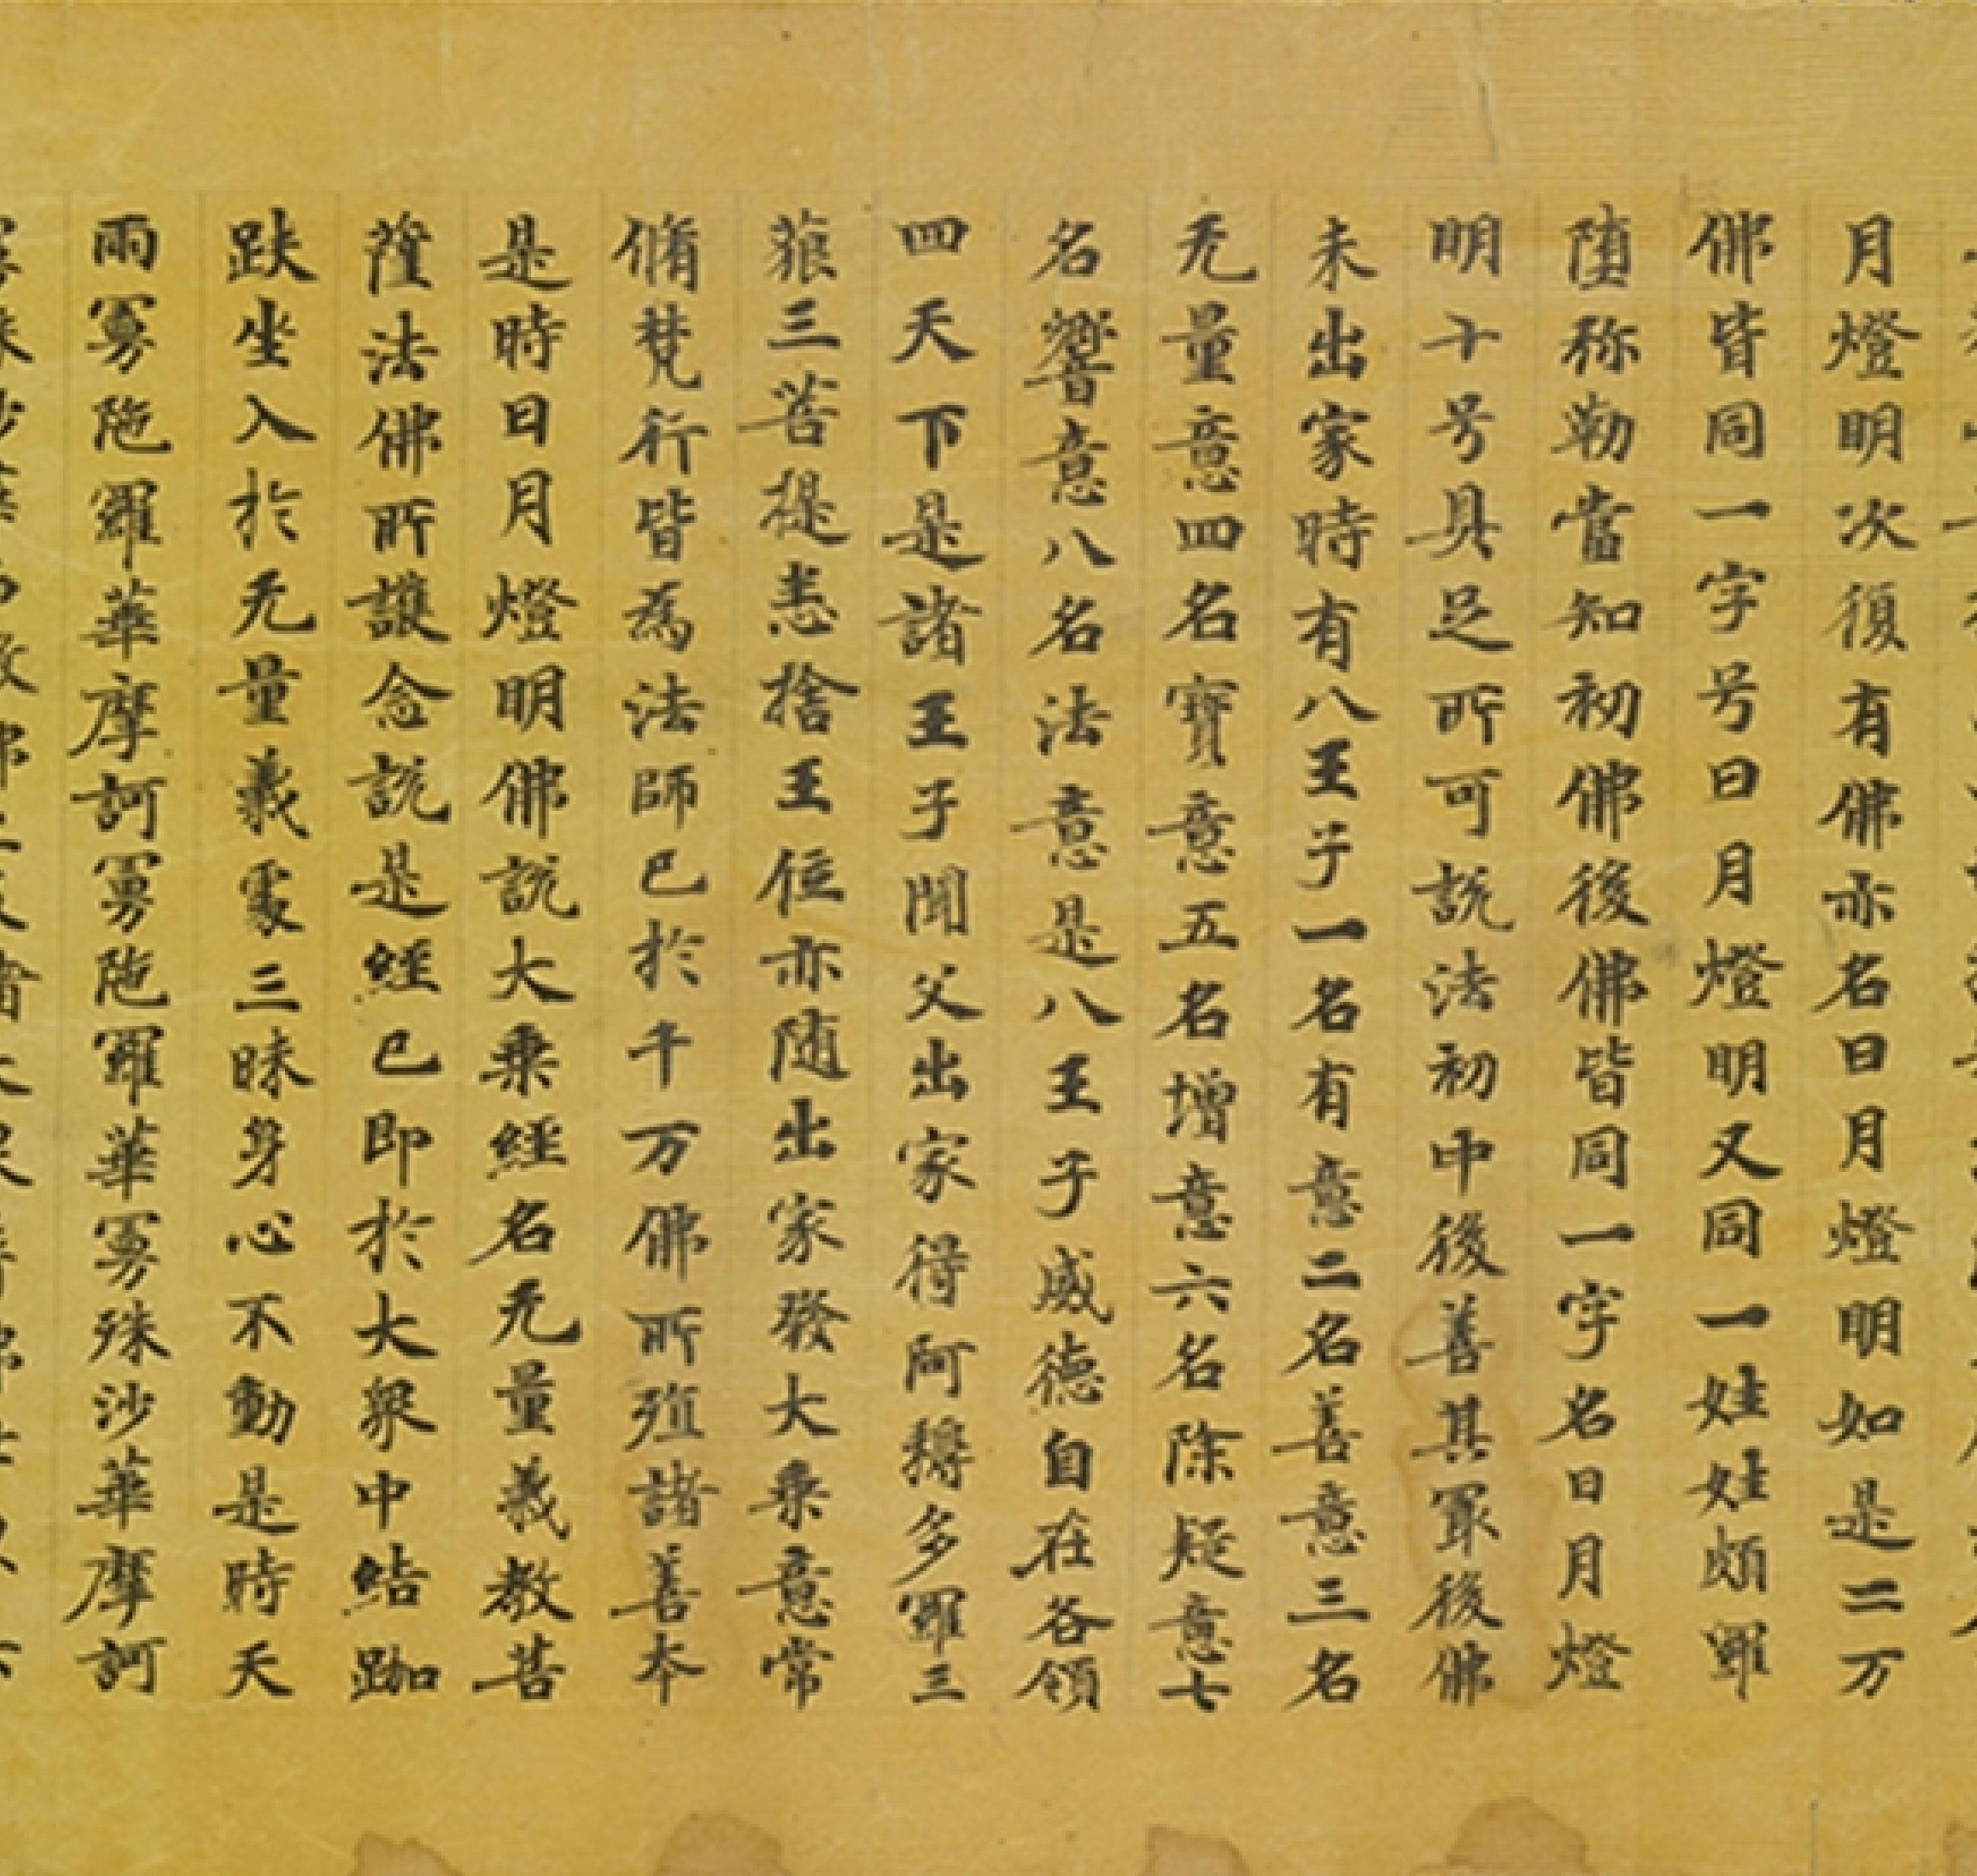 月燈明次復有佛亦名日月燈明如是二万
佛皆同一字号日月燈明又同一姓姓頗羅
堕弥勒當知初佛後佛皆同一字名日月燈
明十号具足所可說法初中後善其冣後佛
未出家時有八王子一名有意二名善意三名
无量意四名寶意五名增意六名除疑意七
名響意八名法意是八王子威德自在各領
四天下是諸王子聞父出家得阿耨多羅三
藐三菩提悉捨王位亦随出家發大乗意常
脩梵行皆為法師已於千万佛所殖諸善本
是時日月燈明佛說大乗經名无量義教菩
薩法佛所護念說是經已即於大衆中結跏
趺坐入於无量義處三昧身心不動是時天
雨曼陁羅華摩訶曼陁羅華曼殊沙華摩訶